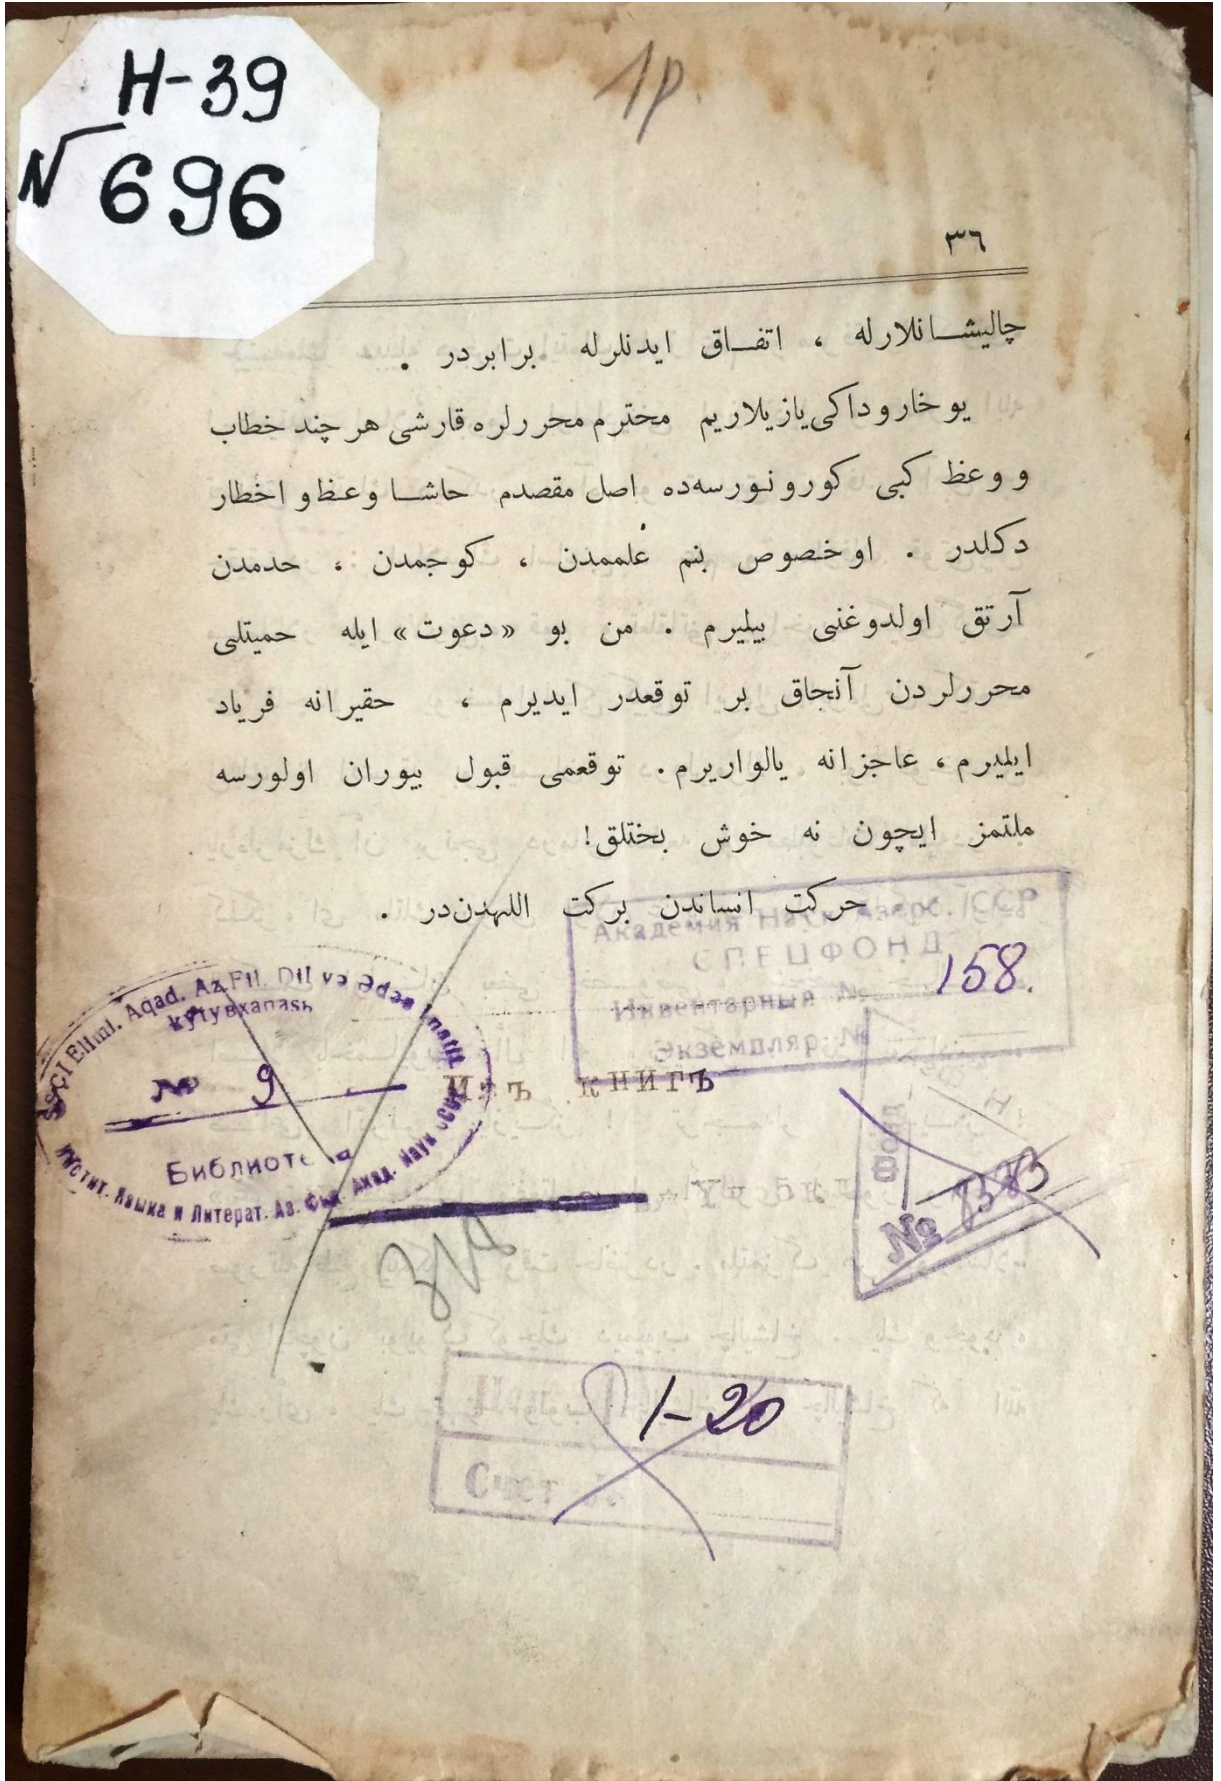 Н-39
№ 696
1р.
٣٦
چالیشـانلارله ، اتفـاق ایدنلرله برابردر .
یوخاروداکی یازیلاریم محترم محررلره قارشی هر چند خطاب
و وعظ کبی کورونورسه‌ده اصل مقصدم حاشـا وعظ و اخطار
دکلدر . او خصوص بنم علممدن ، کوجمدن ، حدمدن
آرتق اولدوغنی بیلیرم . من بو «دعوت» ایله حمیتلی
محررلردن آنجاق بر توقعدر ایدیرم ، حقیرانه فریاد
ایلیرم ، عاجزانه یالواریرم . توقعمی قبول بیوران اولورسه
ملتمز ایچون نه خوش بختلق!
حرکت انساندن برکت اللهدن‌در .
Академия Наук Азерб. ССР
СПЕЦФОНД
Инвентарный № 158.
Экземпляр №
SSCI Elml. Aqad. Az.Fil. Dil və Ədəb. Instit.
kytyвxanasь
№ 9
Библиотека
Инстит. Языка и Литерат. Аз. Фил. Акад. Наук СССР
Изъ книгъ
Фонд
№ 7373
1-20
Счет